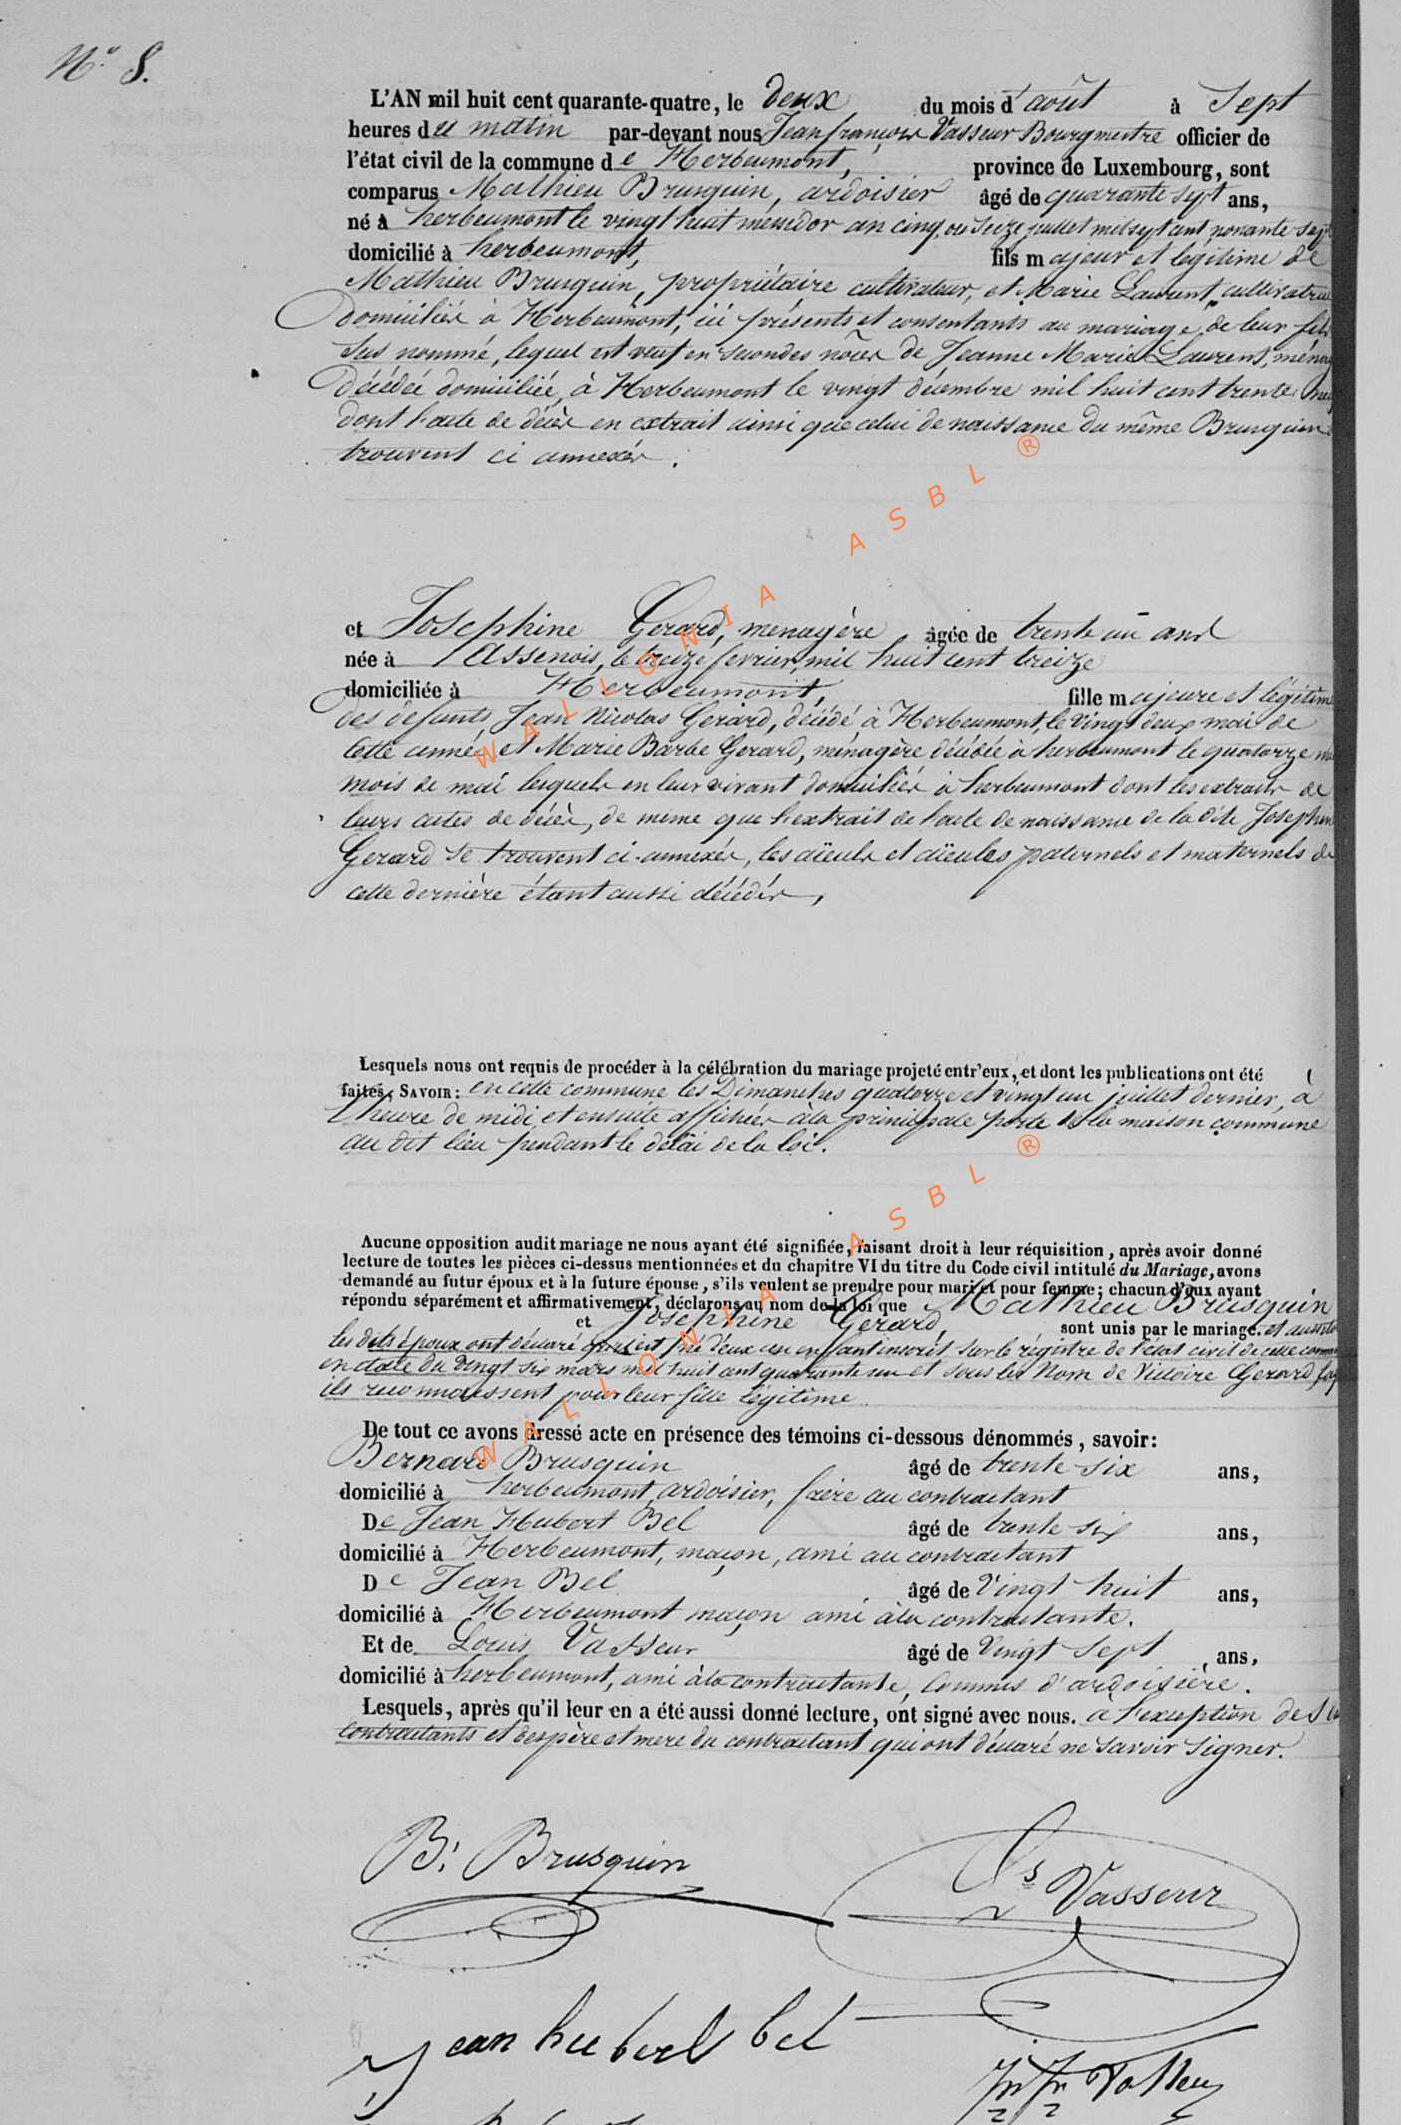 N.o 8.
L'AN mil huit cent quarante-quatre, le deux du mois d'août à Sept
heures du matin par-devant nous Jean françois Vasseur Bourgmestre officier de
l'état civil de la commune de Herbeumont, province de Luxembourg, sont
comparus Mathieu Brusquin, ardoisier âgé de quarante sept ans,
né à herbeumont le vingt huit messidor an cinq, ou Seize juillet mil sept cent nonante sept
domicilié à herbeumont, fils majeur et légitime de
Mathieu Brusquin, propriétaire cultivateur, et Marie Laurent, cultivatrice
domiciliés à Herbeumont, ici présents et consentants au mariage de leur fils
sus nommé, lequel est veuf en secondes nôces de Jeanne Marie Laurent,
décédée domiciliée à Herbeumont le vingt décembre mil huit cent trente
dont l'acte de décès en extrait ainsi que celui de naissance du même Brusquin
trouvent ci annexés.
et Josephine Gerard, menagère âgée de trente un ans
née à Assenois, le treize fevrier, mil huit cent treize
domiciliée à Herbeumont, fille majeure et légitime
des defunts, Jean Nicolas Gerard, décédé à Herbeumont, le vingt deux mai de
cette année, et Marie Barbe Gerard, ménagère décédée à herbeumont le quatorze
mois de mai lesquels en leur vivant domiciliés à herbeumont dont les extraits de
leurs actes de décès, de meme que l'extrait de l'acte de naissance de la dite Josephine
Gerard se trouvent ci-annexés, les aïeuls et aïeules paternels et maternels de
cette dernière étant aussi décédés,
Lesquels nous ont requis de procéder à la célébration du mariage projeté entr'eux, et dont les publications ont été
faites, SAVOIR: en cette commune les Dimanches quatorze et vingt un juillet dernier, à
l'heure de midi, et ensuite affichées à la principale porte de la maison commune
au dit lieu pendant le délai de la loi.
Aucune opposition audit mariage ne nous ayant été signifiée, faisant droit à leur réquisition, après avoir donné
lecture de toutes les pièces ci-dessus mentionnées et du chapitre VI du titre du Code civil intitulé du Mariage, avons
demandé au futur époux et à la future épouse, s'ils veulent se prendre pour mari et pour femme; chacun d'eux ayant
répondu séparément et affirmativement, déclarons au nom de la loi que Mathieu Brusquin
et Josephine Gerard, sont unis par le mariage. et aussitôt
les dits époux ont déclaré qu'il est né d'eux un enfant inscrit sur le régistre de l'état civil de cette commune
en date du vingt six mars mil huit cent quarante un et sous les Nom de Victoire Gerard,
ils reconnaissent pour leur fille légitime.
De tout ce avons dressé acte en présence des témoins ci-dessous dénommés, savoir:
Bernard Brusquin âgé de trente-six ans,
domicilié à herbeumont, ardoisier, frère au contractant
De Jean Hubert Bel âgé de trente six ans,
domicilié à Herbeumont, maçon, ami au contractant
De Jean Bel âgé de vingt huit ans,
domicilié à Herbeumont maçon ami à la contractante.
Et de Louis Vasseur âgé de vingt sept ans,
domicilié à herbeumont, ami à la contractante, commis d'ardoisière.
Lesquels, après qu'il leur en a été aussi donné lecture, ont signé avec nous. à l'exception des
contractants et des père et mere du contractant qui ont déclaré ne savoir signer.
B. Brusquin
Ls Vasseur
Jean hubert bel
Jn Fr Vasseur
WALLONIA ASBL ®
WALLONIA ASBL ®